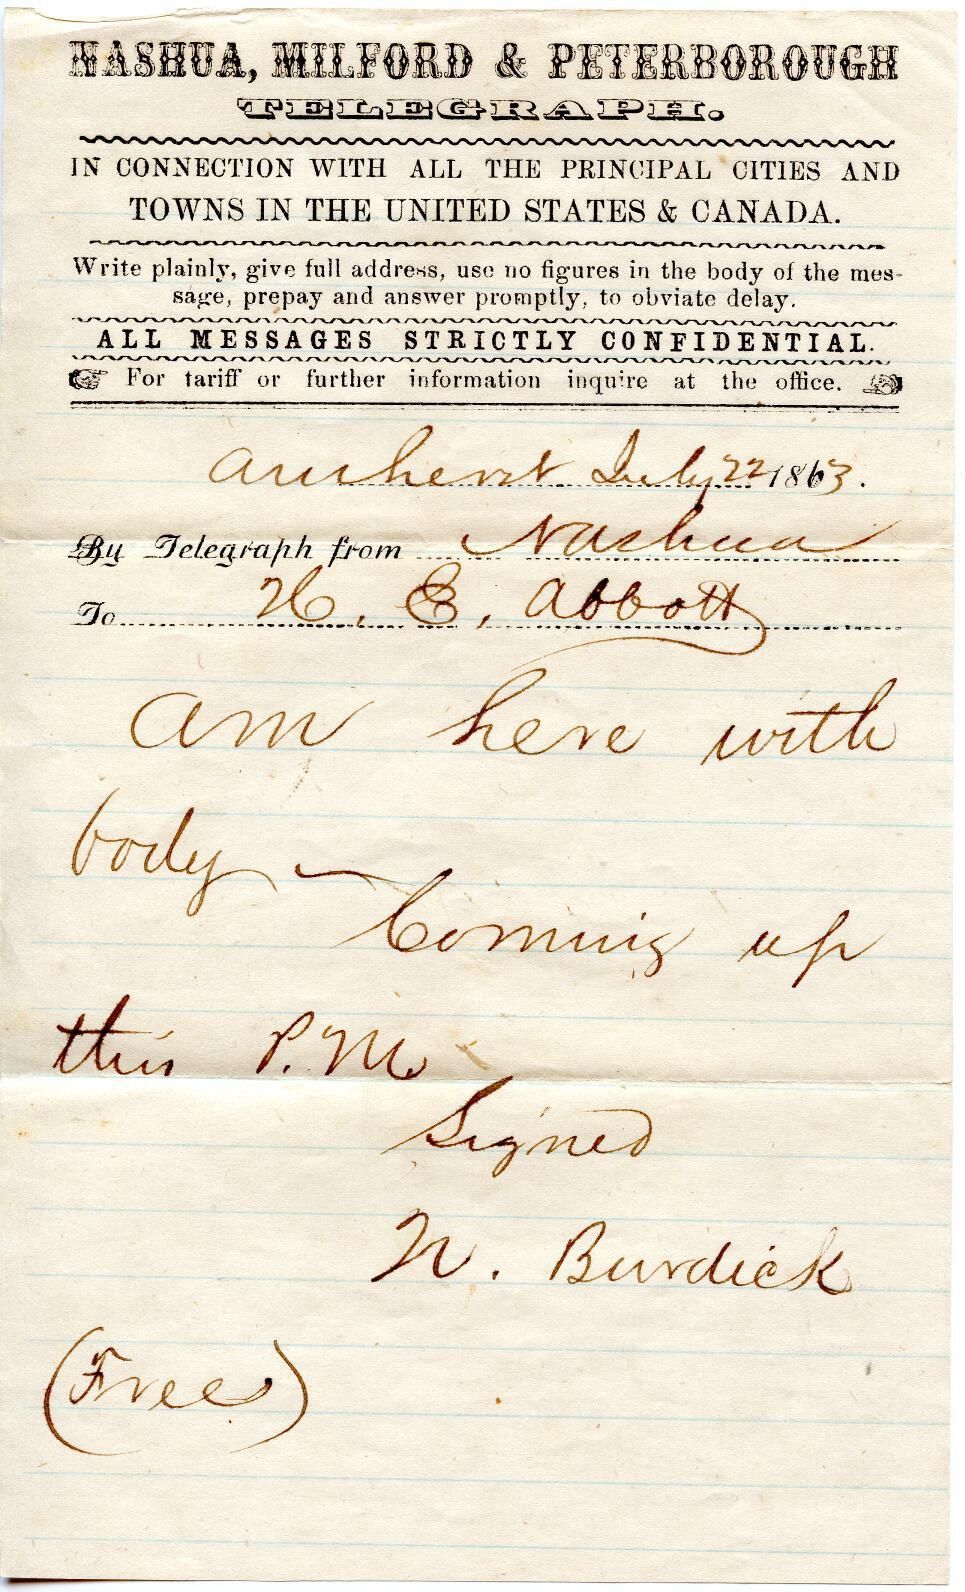 NASHUA, MILFORD & PETERBOROUGH
TELEGRAPH.
IN CONNECTION WITH ALL THE PRINCIPAL CITIES AND
TOWNS IN THE UNITED STATES & CANADA.
Write plainly, give full address, use no figures in the body of the mes-
sage, prepay and answer promptly, to obviate delay.
ALL MESSAGES STRICTLY CONFIDENTIAL.
For tariff or further information inquire at the office.
Amherst July 22 1863.
By Telegraph from Nashua
To H. E. Abbott
Am here with
body —
Coming up
this P.M.
Signed
N. Burdick
(Free)